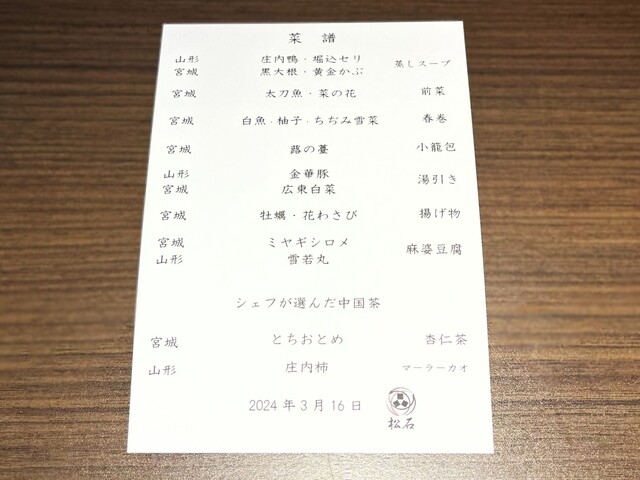 菜 譜
山形 庄内鴨・堀込セリ 蒸しスープ
宮城 黒大根・黄金かぶ
宮城 太刀魚・菜の花 前菜
宮城 白魚・柚子・ちぢみ雪菜 春巻
宮城 蕗の薹 小籠包
山形 金華豚 湯引き
宮城 広東白菜
宮城 牡蠣・花わさび 揚げ物
宮城 ミヤギシロメ 麻婆豆腐
山形 雪若丸
シェフが選んだ中国茶
宮城 とちおとめ 杏仁茶
山形 庄内柿 マーラーカオ
2024年3月16日 松石